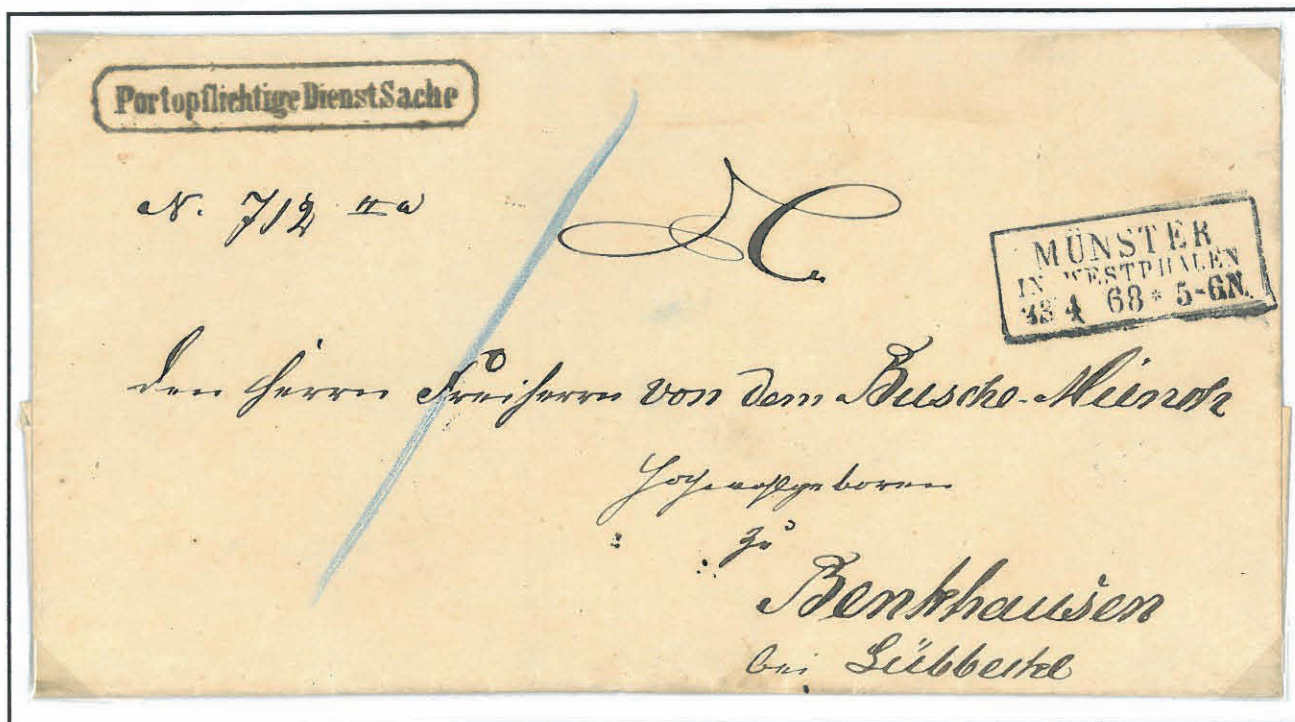 Portopflichtige DienstSache
N. 712 II a
MÜNSTER
IN WESTPHALEN
4 68 * 5-6N.
den Herrn Freiherrn von dem Busche-Münch
Hochwohlgeboren
zu
Benkhausen
bei Lübbecke